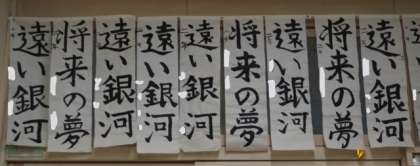 遠い銀河
将来の夢
遠い銀河
遠い銀河
遠い銀河
将来の夢
遠い銀河
将来の夢
遠い銀河